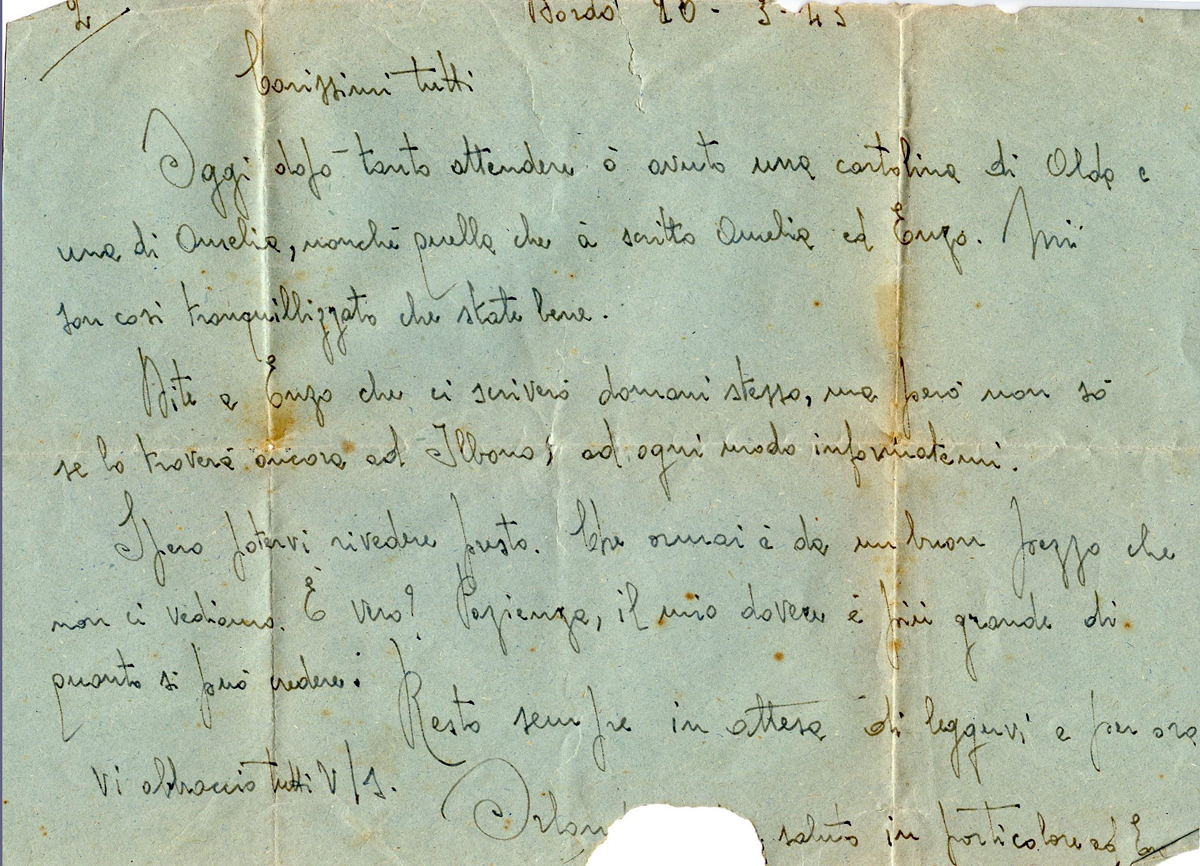 2
Bordo 20 - 3 - 43
Carissimi tutti
Oggi dopo tanto attendere ò avuto una cartolina di Alda e
una di Amelia, nonché quella che à scritto Amelia ed Enzo. Mi
son così tranquillizzato che state bene.
Dite a Enzo che ci scriverò domani stesso, ma però non sò
se lo troverà ancora ad Ilbono, ad ogni modo informatemi.
Spero potervi rivedere presto. Che ormai è da un buon pezzo che
non ci vediamo. È vero? Pazienza, il mio dovere è più grande di
quanto si può credere.
Resto sempre in attesa di leggervi e per ora
vi abbraccio tutti V/S.
Orlan saluto in particolare ad